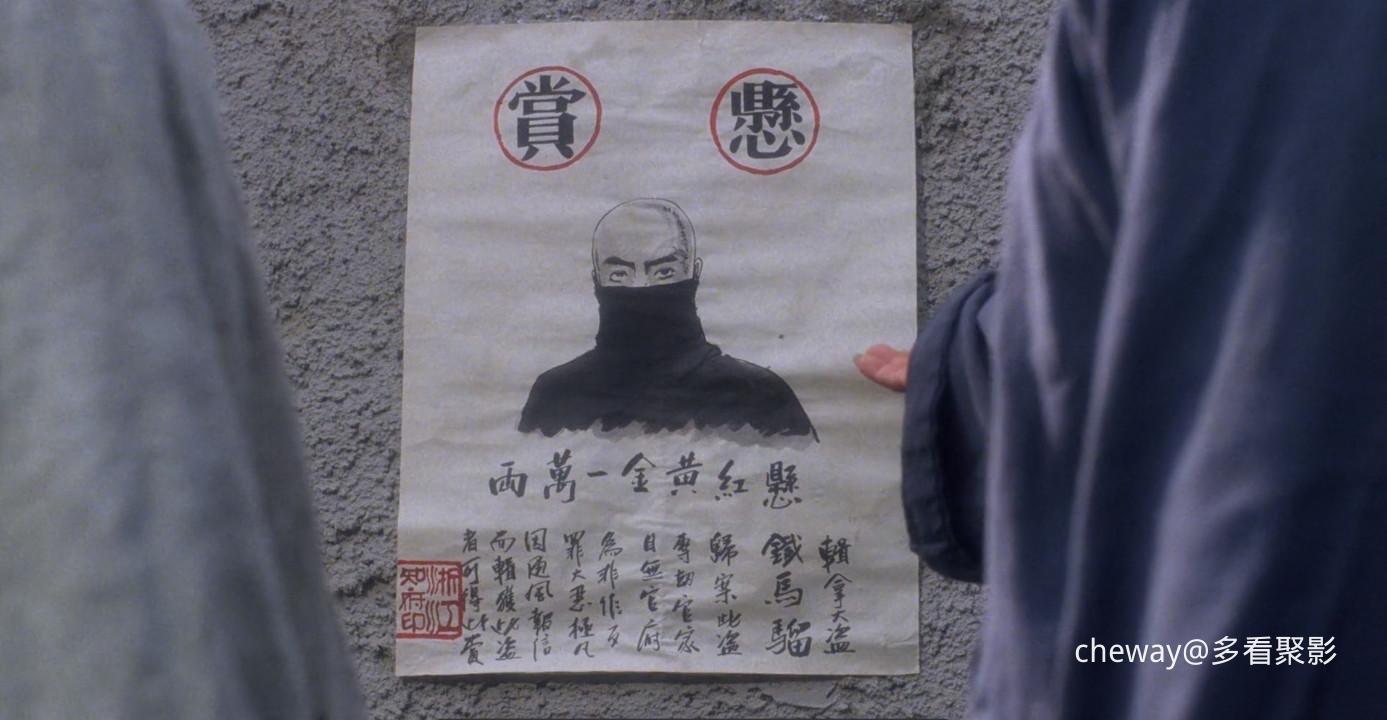 懸賞
懸紅黃金一萬兩
輯拿大盜
鐵馬騮
歸案此盜
專劫官家
目無官府
為非作歹
罪大惡極凡
因通風報信
而輯獲此盜
者可得此賞
浙江
知府印
cheway@多看聚影